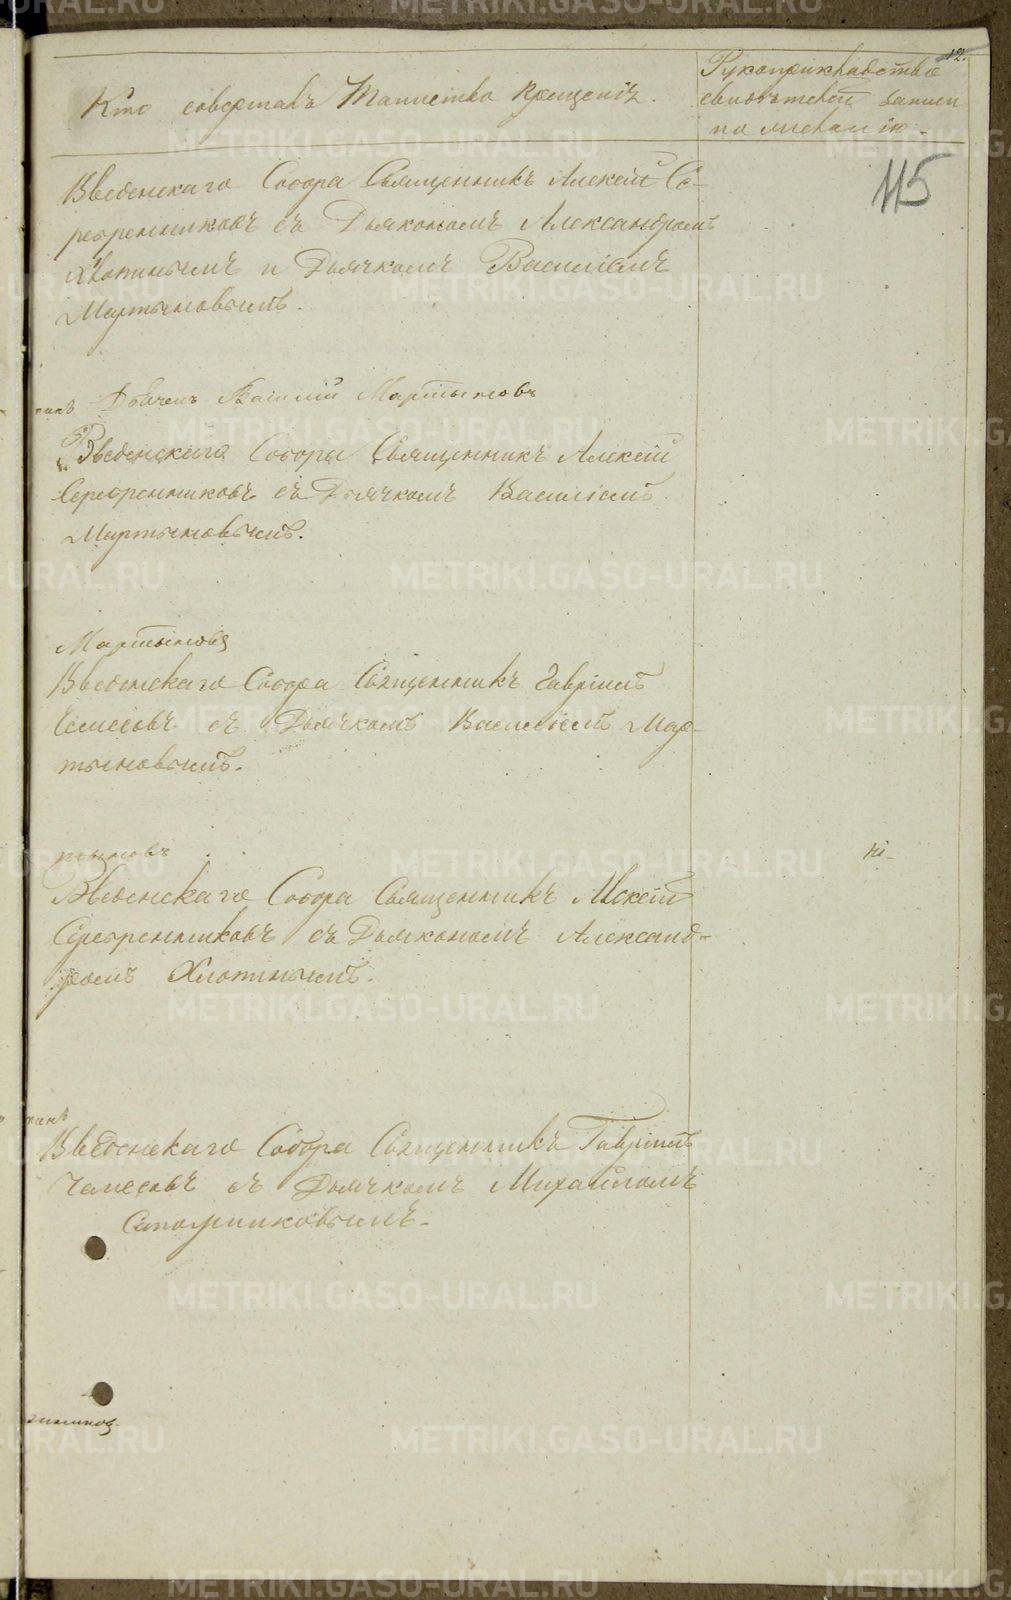 12.
Кто совершалъ Таинство Крещенія.
Рукоприкладство
свидѣтелей записи
по желанію.
115
Введенскаго Собора Священникъ Алексѣй Се-
ребренниковъ съ Дьякономъ Александромъ
Хлопинымъ и Дьячкомъ Василіемъ
Мартыновымъ.
Дьячекъ Василій Мартыновъ
Введенскаго Собора Священникъ Алексѣй
Серебренниковъ съ Дьячкомъ Василіемъ
Мартыновымъ.
Мартыновъ
Введенскаго Собора Священникъ Гавріилъ
съ Дьячкомъ Василіемъ Мар-
тыновымъ.
тыновъ
Введенскаго Собора Священникъ Алексѣй
Серебренниковъ съ Дьякономъ Александ-
ромъ Хлопинымъ.
Введенскаго Собора Священникъ Гавріилъ
съ Дьячкомъ Михаиломъ
METRIKI.GASO-URAL.RU